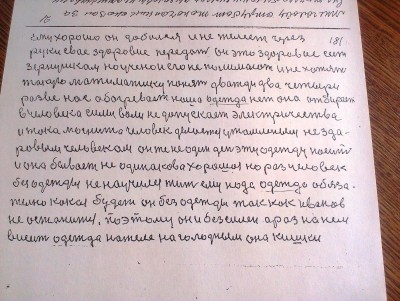 ему хорошо он добился и не жалеет через
181
руки свае здоровие передат он это здоровие сем
зерникам но ученой его не понимают и не хотят
такого матиматику понят дватри два четыри
разве нас обогревает наша одежда нет она отбирает
в человека силу волю не допускает электричества
и тока, магнита человек делается уташенному не здо-
ровым человеком он же не один ден эту одежду носит
и она бывает не одинакова хорошая но раз человек
без одежды не научился жит ему нада одежда обяза-
телно какая будет он без одежды так как иванов
не останится, поэтому они безсилен а раз на нем
висит одежда на теле на голодным она кишки